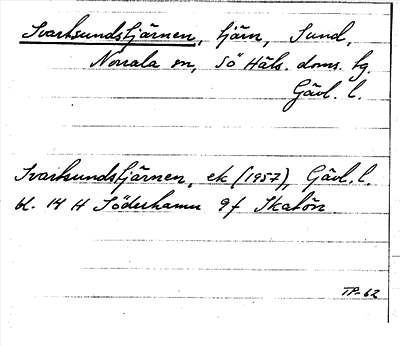 Svartsundstjärnen, tjärn, Sund,
Norrala sn, Sö Häls. doms. tg.
Gävl. l.
Svartsundstjärnen, ek (1957), Gävl. l.
bl. 14 H Söderhamn 9f Skatön
TP-62